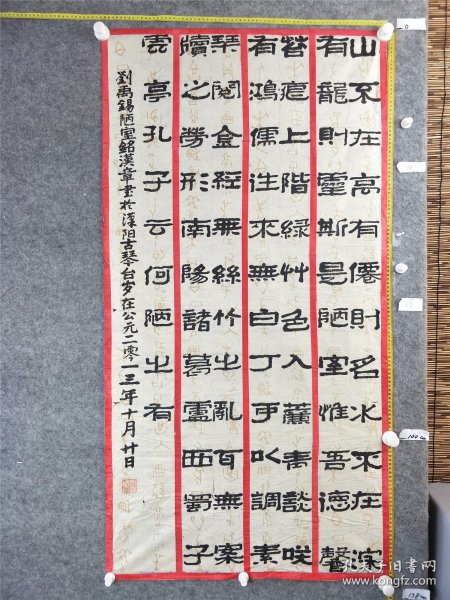 山不在高有僊則名水不在深
有龍則靈斯是陋室惟吾德馨
苔痕上階綠艸色入簾青談咲
有鴻儒往來無白丁可以調素
琴閱金經無絲竹之亂耳無案
牘之勞形南陽諸葛廬西蜀子
雲亭孔子云何陋之有
劉禹錫陋室銘漢章書於漢阳古琴台岁在公元二零一三年十月廿日
0
100cm
138cm
孔夫子旧书网
kongfz.com